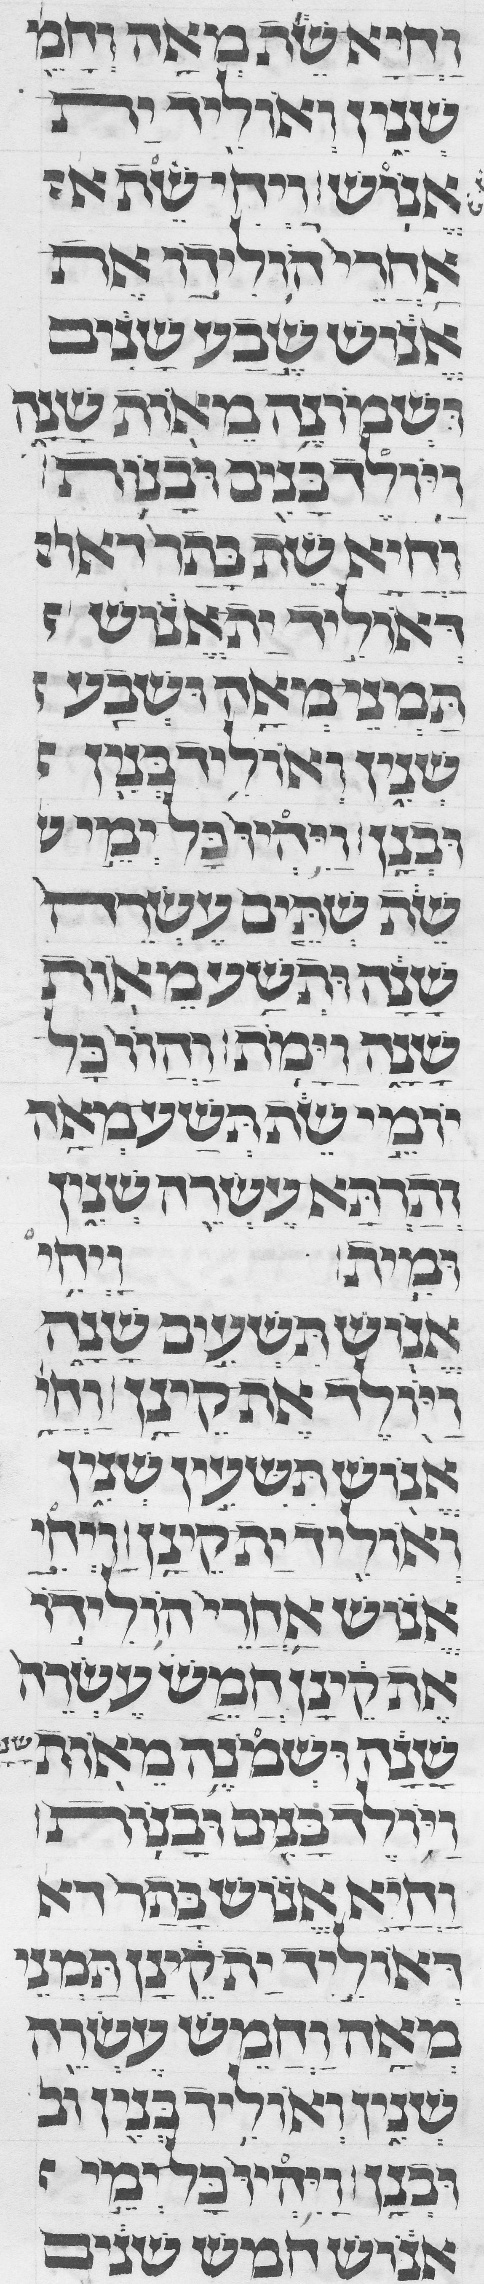 וַחְיָא שֵׁת מְאָה וְחַמ
שְׁנִין וְאוֹלֵיד יַת
אֱנוֹשׁ׃ וַיְחִי שֵׁת א
אַחֲרֵי הוֹלִידוֹ אֶת
אֱנוֹשׁ שֶׁבַע שָׁנִים
וּשְׁמוֹנֶה מֵאוֹת שָׁנָה
וַיּוֹלֶד בָּנִים וּבָנוֹת׃
וַחְיָא שֵׁת בָּתַר דאו
דְּאוֹלֵיד יַת אֱנוֹשׁ
תְּמָנֵי מְאָה וּשְׁבַע
שְׁנִין וְאוֹלֵיד בְּנִין
וּבְנָן׃ וַיִּהְיוּ כָּל יְמֵי ש
שֵׁת שְׁתֵּים עֶשְׂרֵה
שָׁנָה וּתְשַׁע מֵאוֹת
שָׁנָה וַיָּמֹת׃ וַהֲווֹ כָּל
יוֹמֵי שֵׁת תְּשַׁע מְאָה
וְתַרְתָּא עֶשְׂרֵה שְׁנִין
וּמִית׃ וַיְחִי
אֱנוֹשׁ תִּשְׁעִים שָׁנָה
וַיּוֹלֶד אֶת קֵינָן׃ וַחְי
אֱנוֹשׁ תִּשְׁעִין שְׁנִין
וְאוֹלֵיד יַת קֵינָן׃ וַיְחִי
אֱנוֹשׁ אַחֲרֵי הוֹלִידוֹ
אֶת קֵינָן חֲמֵשׁ עֶשְׂרֵה
שָׁנָה וּשְׁמֹנֶה מֵאוֹת שנ
וַיּוֹלֶד בָּנִים וּבָנוֹת׃
וַחְיָא אֱנוֹשׁ בָּתַר דא
דְּאוֹלֵיד יַת קֵינָן תְּמָנֵי
מְאָה וַחֲמֵשׁ עֶשְׂרֵה
שְׁנִין וְאוֹלֵיד בְּנִין וב
וּבְנָן׃ וַיִּהְיוּ כָּל יְמֵי
אֱנוֹשׁ חָמֵשׁ שָׁנִים